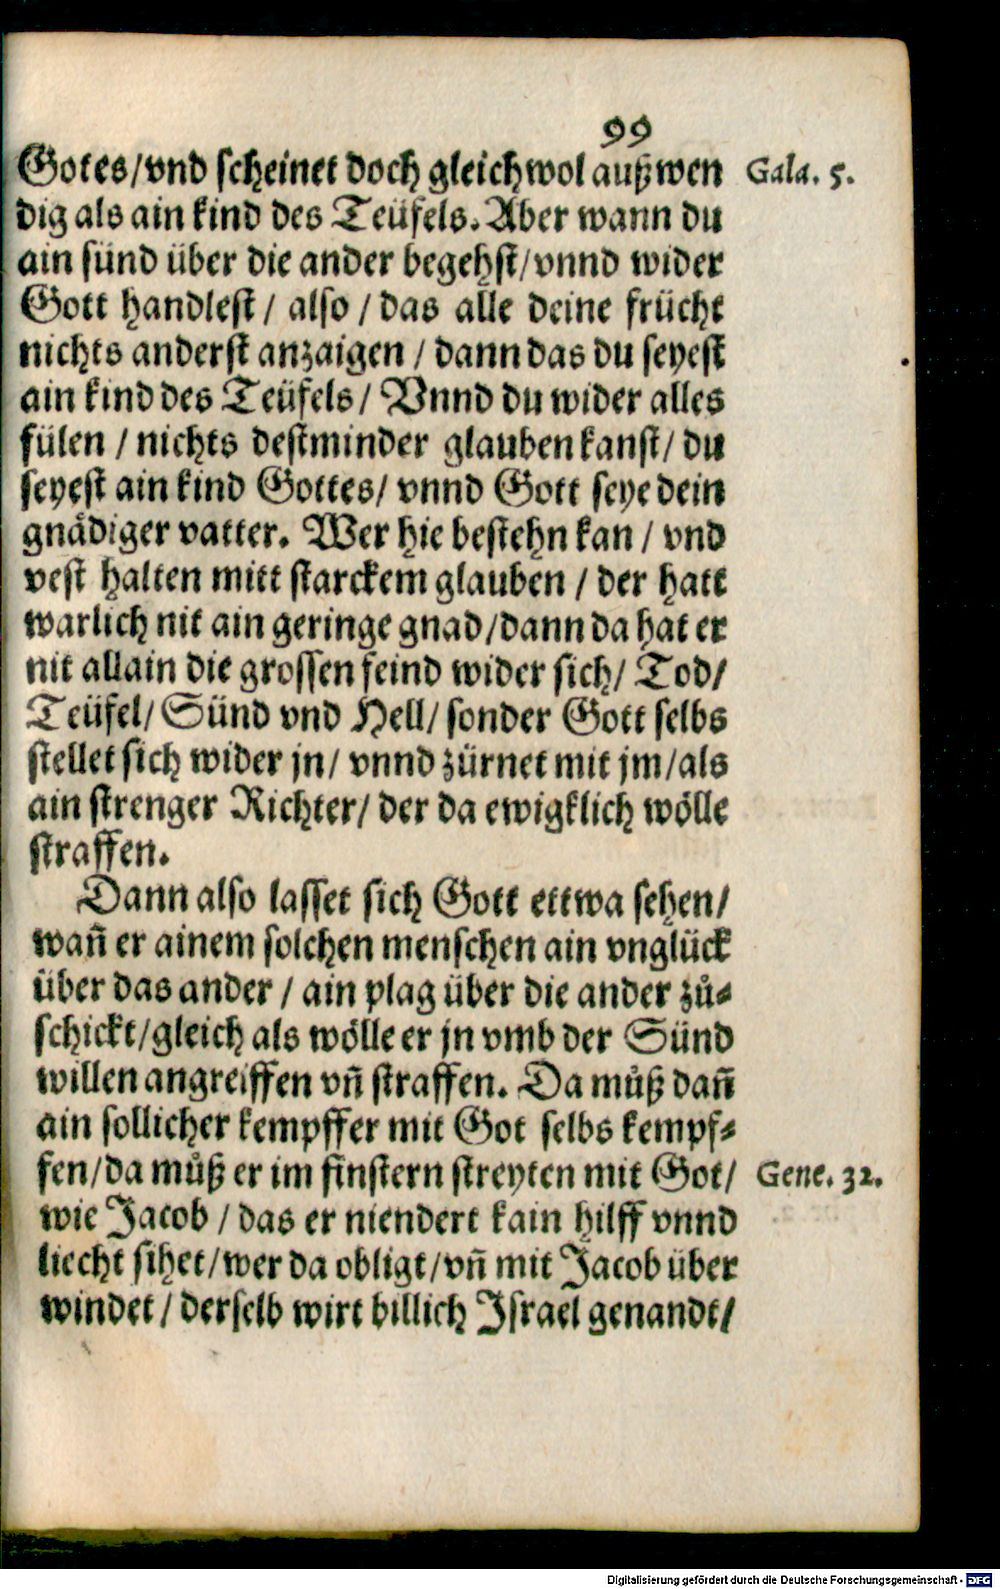 99
Gotes/vnd scheinet doch gleichwol außwen Gala. 5.
dig als ain kind des Teüfels. Aber wann du
ain sünd über die ander begehst/vnnd wider
Gott handlest / also / das alle deine frücht
nichts anderst anzaigen / dann das du seyest
ain kind des Teüfels / Vnnd du wider alles
fülen / nichts destminder glauben kanst / du
seyest ain kind Gottes / vnnd Gott seye dein
gnädiger vatter. Wer hie bestehn kan / vnd
vest halten mitt starckem glauben / der hatt
warlich nit ain geringe gnad/dann da hat er
nit allain die grossen feind wider sich/ Tod/
Teüfel/ Sünd vnd Hell/ sonder Gott selbs
stellet sich wider jn/ vnnd zürnet mit jm/als
ain strenger Richter/ der da ewigklich wölle
straffen.
Dann also lasset sich Gott ettwa sehen/
wañ er ainem solchen menschen ain vnglück
über das ander / ain plag über die ander zů⸗
schickt/gleich als wölle er jn vmb der Sünd
willen angreiffen vñ straffen. Da můß dañ
ain sollicher kempffer mit Got selbs kempf⸗
fen/da můß er im finstern streyten mit Got/ Gene. 32.
wie Jacob / das er niendert kain hilff vnnd
liecht sihet/wer da obligt/vñ mit Jacob über
windet / derselb wirt billich Israel genandt/
Digitalisierung gefördert durch die Deutsche Forschungsgemeinschaft - DFG